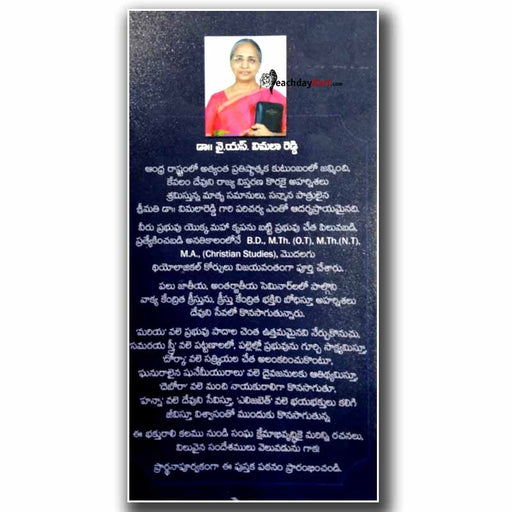 eachdaykart.com
డా॥ వై.యస్. విమలా రెడ్డి
ఆంధ్ర రాష్ట్రంలో అత్యంత ప్రతిష్ఠాత్మక కుటుంబంలో జన్మించి,
కేవలం దేవుని రాజ్య విస్తరణ కొరకై అహర్నిశలు
శ్రమిస్తున్న మాతృ సమానులు, సన్మాన పాత్రులైన
శ్రీమతి డా॥ విమలారెడ్డి గారి పరిచర్య ఎంతో ఆదర్శప్రాయమైనది.
వీరు ప్రభువు యొక్క మహా కృపను బట్టి ప్రభువు చేత పిలువబడి,
ప్రత్యేకించబడి అనతికాలంలోనే B.D., M.Th. (O.T), M.Th.(N.T),
M.A., (Christian Studies), మొదలగు
థియోలాజికల్ కోర్సులు విజయవంతంగా పూర్తి చేశారు.
పలు జాతీయ, అంతర్జాతీయ సెమినార్‌లలో పాల్గొని
వాక్య కేంద్రిత క్రీస్తును, క్రీస్తు కేంద్రిత భక్తిని బోధిస్తూ అహర్నిశలు
దేవుని సేవలో కొనసాగుతున్నారు.
'మరియ' వలె ప్రభువు పాదాల చెంత ఉత్తమమైనవి నేర్చుకొనుచు,
'సమరయ స్త్రీ' వలె పట్టణాలలో, పల్లెల్లో ప్రభువును గూర్చి సాక్ష్యమిస్తూ,
'దోర్కా' వలె సత్క్రియల చేత అలంకరించుకొంటూ,
'ఘనురాలైన షునేమీయురాలు' వలె దైవజనులకు ఆతిథ్యమిస్తూ,
'దెబోరా' వలె మంచి నాయకురాలిగా కొనసాగుతూ,
'హన్నా' వలె దేవుని సేవిస్తూ, 'ఎలిజబెత్' వలె భయభక్తులు కలిగి
జీవిస్తూ విశ్వాసంతో ముందుకు కొనసాగుతున్న
ఈ భక్తురాలి కలము నుండి సంఘ క్షేమాభివృద్ధికై మరిన్ని రచనలు,
విలువైన సందేశములు వెలువడును గాక!
ప్రార్థనాపూర్వకంగా ఈ పుస్తక పఠనం ప్రారంభించండి.